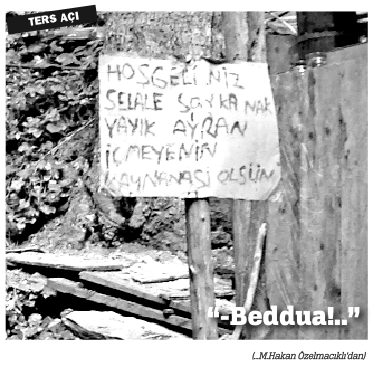 TERS AÇI
HOŞGELİNİZ
ŞELALE SOYKANAK
YAYIK AYRAN
İÇMEYENİN
KAYNANASI OLSÜN
"-Beddua!.."
(..M.Hakan Özelmacıklı'dan)